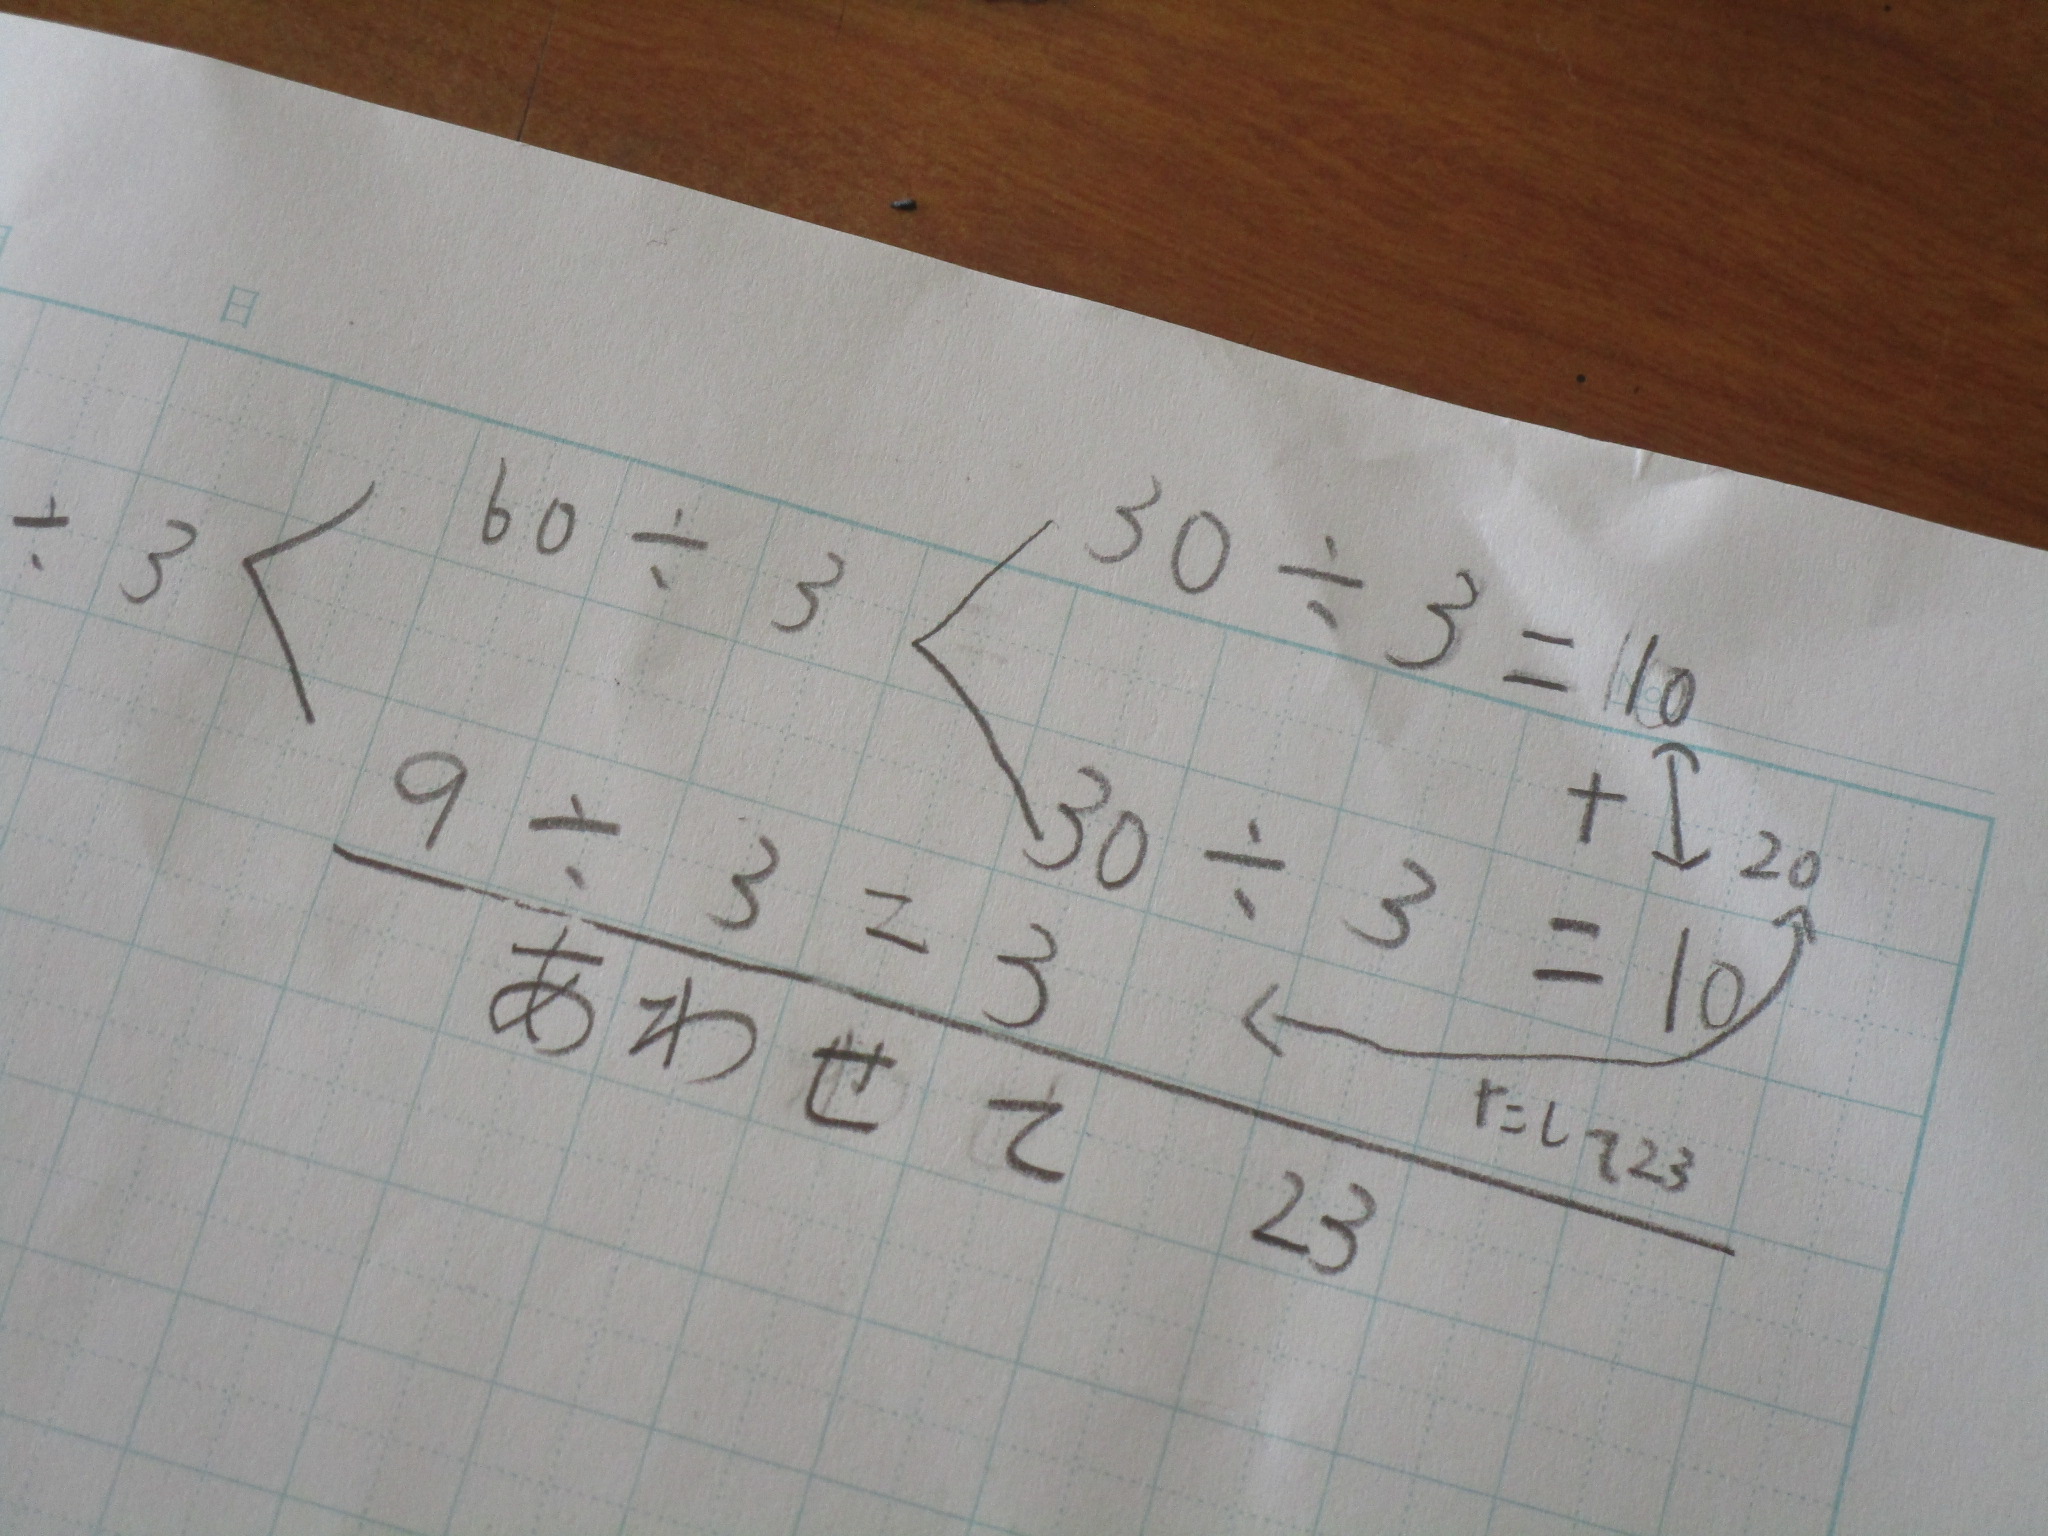 日
÷ 3 60 ÷ 3 30 ÷ 3 = 10
+ 20
9 ÷ 3 = 3 30 ÷ 3 = 10
たして23
あわせて 23